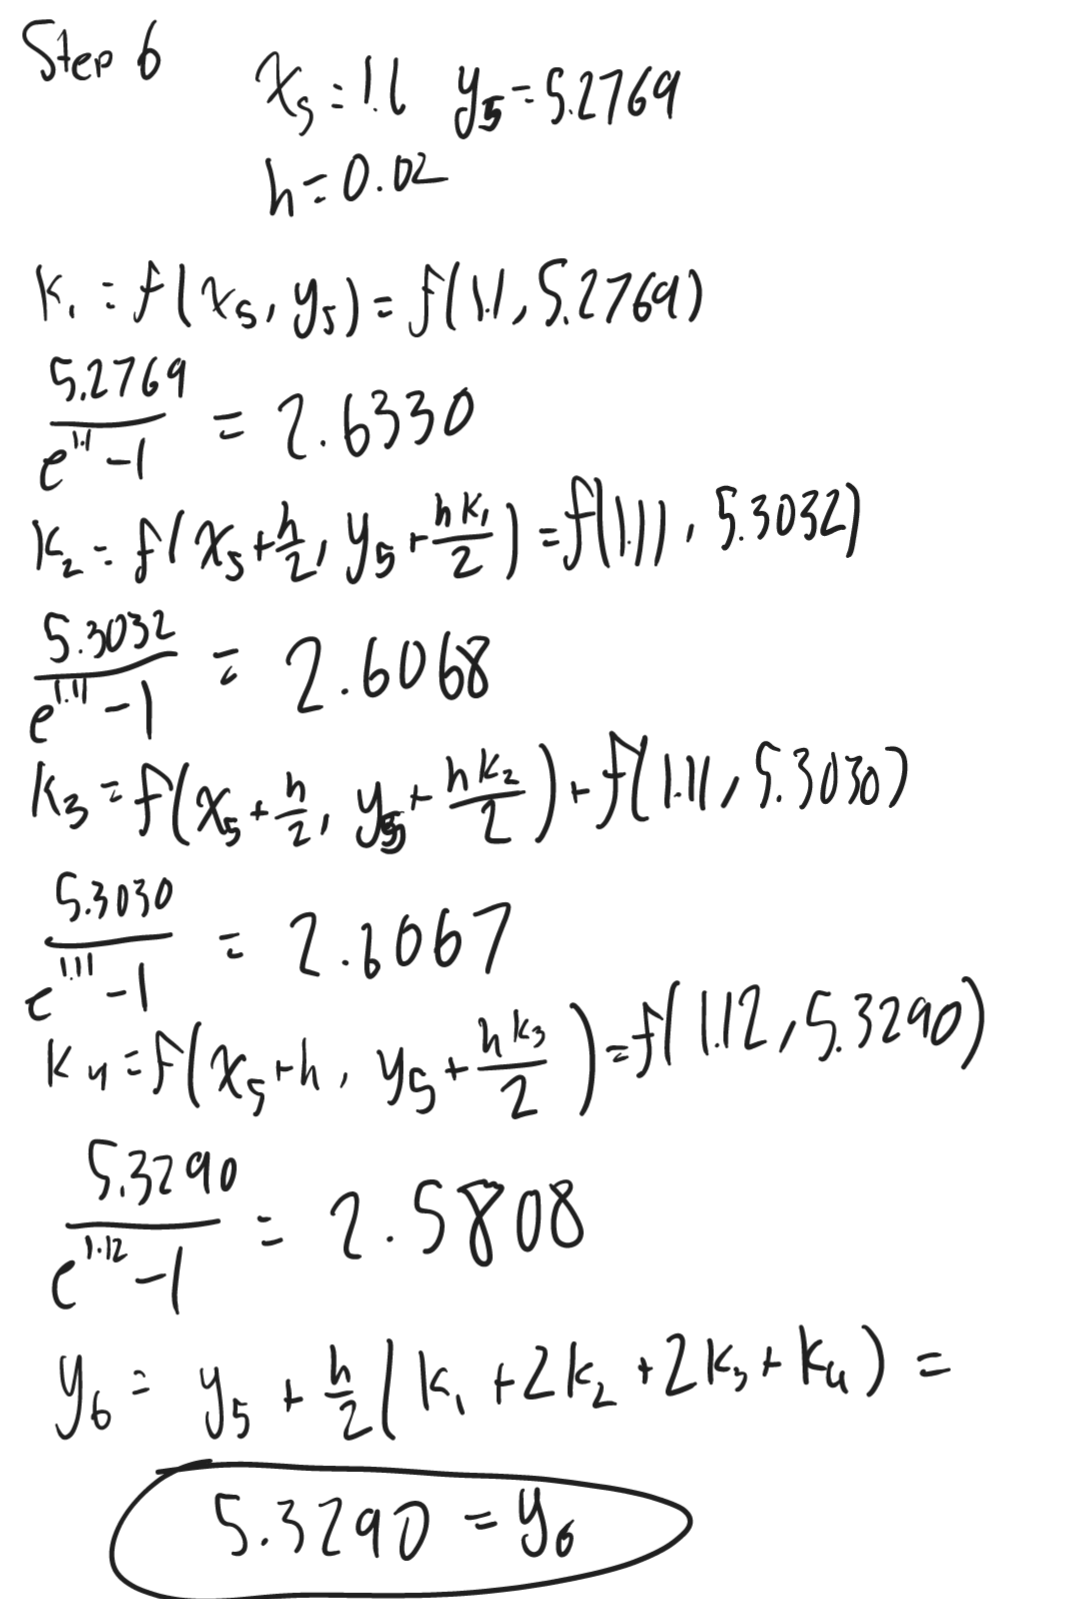 Step 6
x₅ = 1.1 y₅ = 5.2769
h = 0.02
k₁ = f(x₅, y₅) = f(1.1, 5.2769)
5.2769 / (e^1.1 - 1) = 2.6330
k₂ = f(x₅ + h/2, y₅ + hk₁/2) = f(1.11, 5.3032)
5.3032 / (e^1.11 - 1) = 2.6068
k₃ = f(x₅ + h/2, y₅ + hk₂/2) + f(1.11, 5.3030)
5.3030 / (e^1.11 - 1) = 2.6067
k₄ = f(x₅ + h, y₅ + hk₃/2) = f(1.12, 5.3290)
5.3290 / (e^1.12 - 1) = 2.5808
y₆ = y₅ + h/2 (k₁ + 2k₂ + 2k₃ + k₄) =
5.3290 = y₆